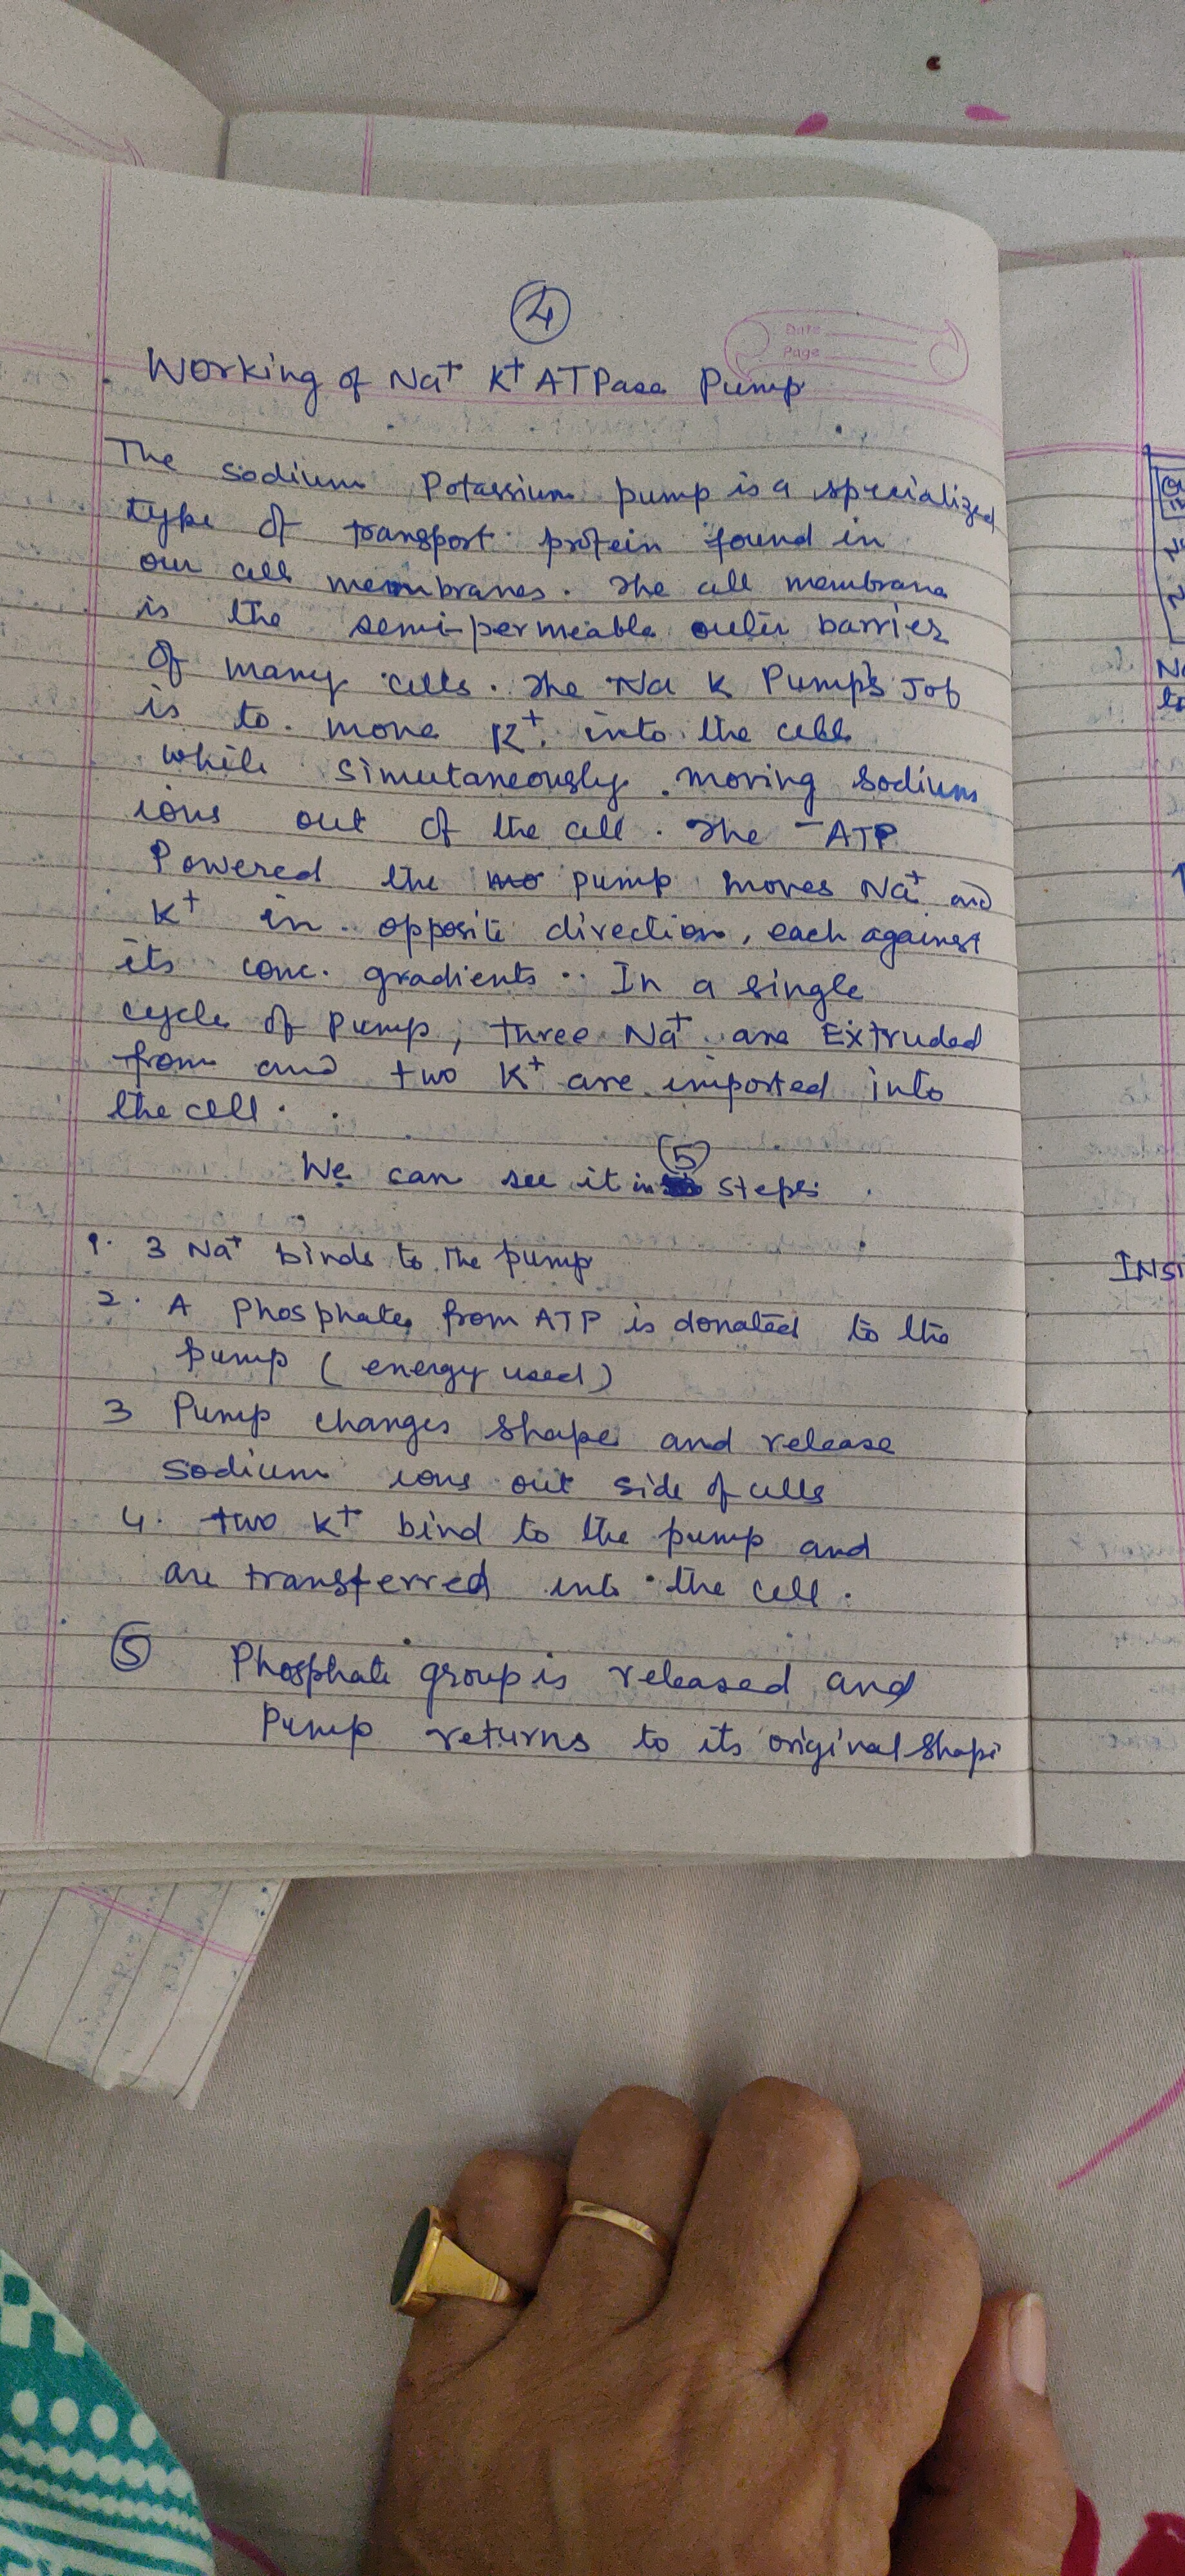 4
Date
Page
Working of Na+ K+ ATPase Pump
The sodium Potassium pump is a specialized
type of transport protein found in
our cell membranes. The cell membrane
is the semi-permeable outer barrier
of many cells. The Na K Pump's Job
is to move K+ into the cell
while simutaneously moving sodium
ions out of the cell. The - ATP
Powered the pump moves Na+ and
K+ in opposite direction, each against
its conc. gradients. In a single
cycle of Pump, three Na+ are Extruded
from and two K+ are imported into
the cell.
We can see it in 5 steps
1. 3 Na+ binds to the pump
2. A Phosphate from ATP is donated to the
pump (energy used)
3 Pump changes shape and release
sodium ions out side of cells
4. two K+ bind to the pump and
are transferred into the cell.
5 Phosphate group is released and
Pump returns to its original shape